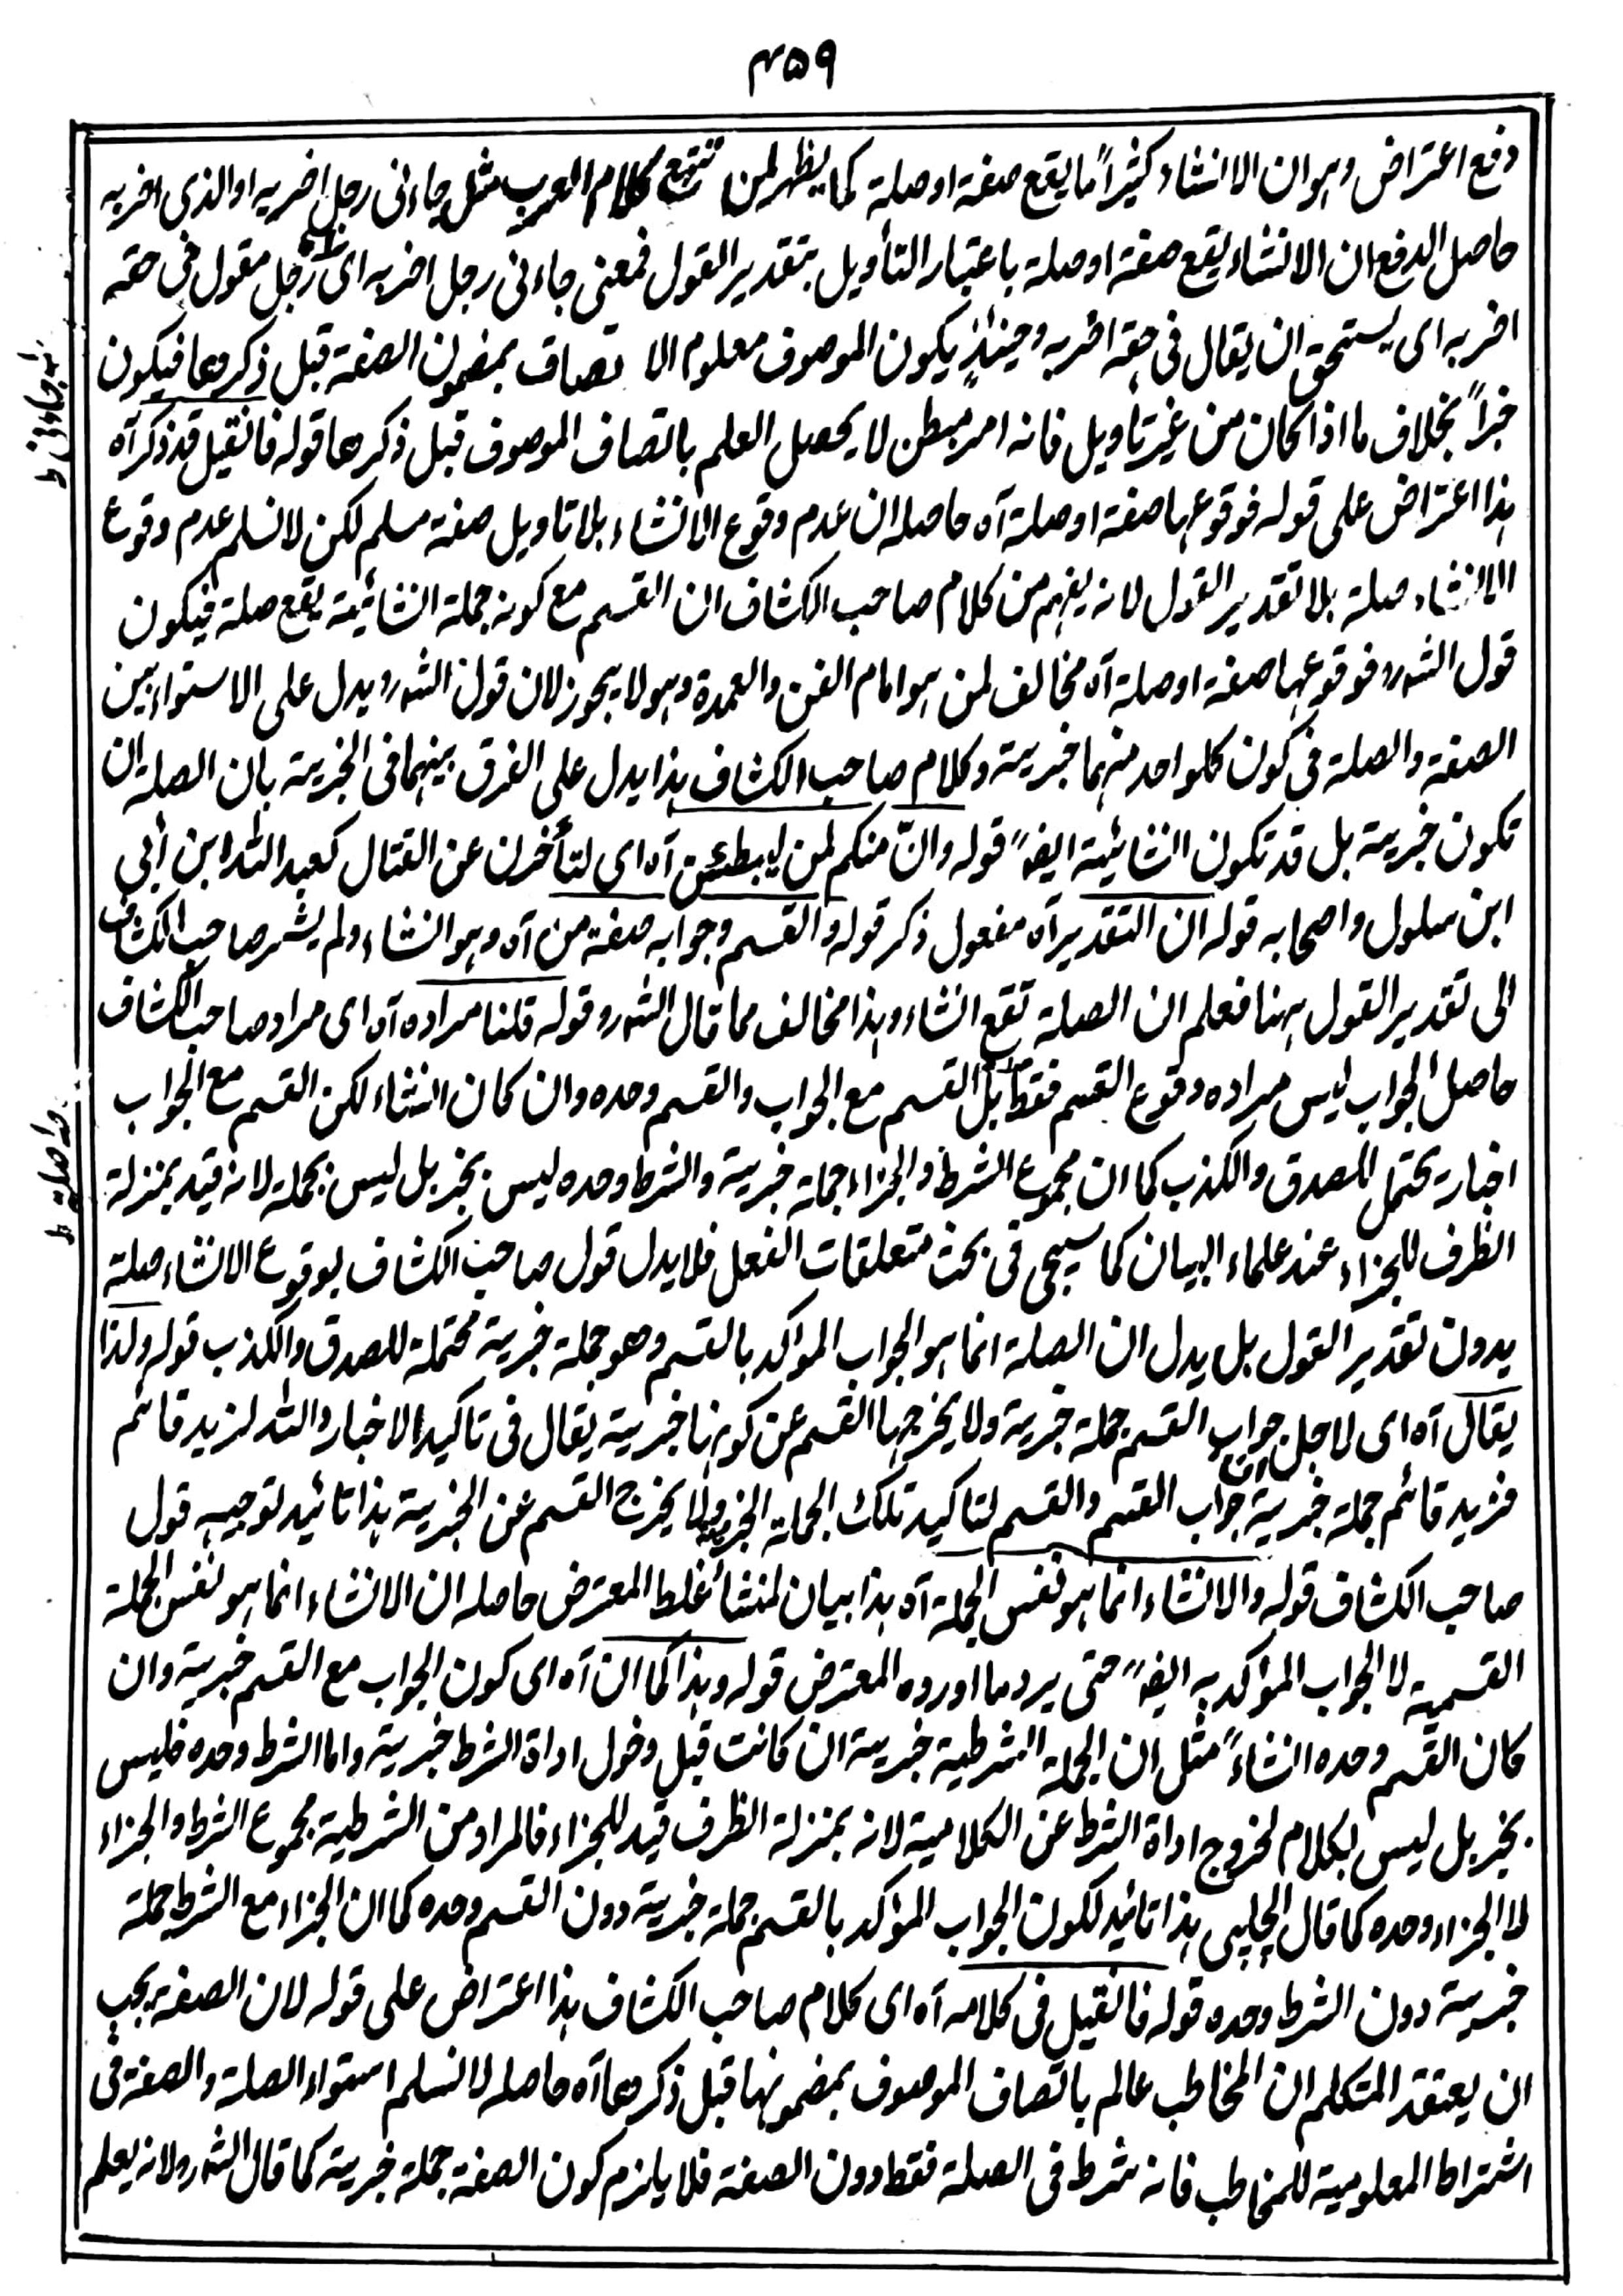 ۴۵۹
دفع اعتراض وہو ان الانشاء کثیراً ما یقع صفۃ اوصلۃ کما یظہر لمن تتبع کلام العرب مثل جاءنی رجل اضربہ او الذی اضربہ
حاصل الدفع ان الانشاء یقع صفۃ اوصلۃ باعتبار التأویل بتقدیر القول فمعنی جاءنی رجل اضربہ ای رجل مقول فی حقہ
اضربہ ای یستحق ان یقال فی حقہ اضربہ وحینئذٍ یکون الموصوف معلوم الاتصاف بمضمون الصفۃ قبل ذکرھا فیکون
خبراً بخلاف ما اذا کان من غیر تاویل فانہ امر مبطن لا یحصل العلم باتصاف الموصوف قبل ذکرھا قولہ فانقیل قد ذکر آہ
ہذا اعتراض علی قولہ فوقوعہا صفۃ اوصلۃ آہ حاصلہ ان عدم وقوع الانشاء بلا تاویل صفۃ مسلم لکن لا نسلم عدم وقوع
الانشاء صلۃ بلا تقدیر القول لانہ یفہم من کلام صاحب الکشاف ان القسم مع کونہ جملۃ انشائیۃ یقع صلۃ فیکون
قول الشہ رو فوقوعہا صفۃ اوصلۃ آہ مخالف لمن ہو امام الفن والعمدۃ وہو لا یجوز لان قول الشہ رو یدل علی الاستواء بین
الصفۃ والصلۃ فی کون کلواحد منہما خبریۃ وکلام صاحب الکشاف ہذا یدل علی الفرق بینہما فی الخبریۃ بان الصلۃ ان
تکون خبریۃ بل قد تکون انشائیۃ ایضاً قولہ وانّ منکم لمن لیبطئن آہ ای لتأخرن عن القتال کعبد اللہ ابن أبی
ابن سلول واصحابہ قولہ ان التقدیر آہ مفعول ذکر قولہ والقسم وجوابہ صفۃ من آہ وہو انشاء ولم یشر صاحب الکشاف
الی تقدیر القول ہہنا فعلم ان الصلۃ تقع انشاء وہذا مخالف مما قال الشہ رو قولہ قلنا مرادہ آہ ای مراد صاحب الکشاف
حاصل الجواب لیس مرادہ وقوع القسم فقط بل القسم مع الجواب والقسم وحدہ وان کان انشاء لکن القسم مع الجواب
اخبار یحتمل للصدق والکذب کما ان مجموع الشرط والجزاء جملۃ خبریۃ والشرط وحدہ لیس بخبر بل لیس بجملۃ لانہ قید بمنزلۃ
الظرف للجزاء عند علماء البیان کما سیجی فی بحث متعلقات الفعل فلا یدل قول صاحب الکشاف بوقوع الانشاء صلۃ
بدون تقدیر القول بل یدل ان الصلۃ انما ہو الجواب المؤکد بالقسم وھو جملۃ خبریۃ محتملۃ للصدق والکذب قولہ ولذا
یقال آہ ای لاجل جواب القسم جملۃ خبریۃ ولا یخرجہا القسم عن کونہا خبریۃ یقال فی تاکید الاخبار واللہ لزید قائم
فزید قائم جملۃ خبریۃ جواب القسم والقسم لتاکید تلک الجملۃ الخبریۃ ولا یخرج القسم عن الخبریۃ ہذا تائید لتوجیہ قول
صاحب الکشاف قولہ والانشاء انما ہو نفس الجملۃ آہ ہذا بیان لمنشأ غلط المعترض حاصلہ ان الانشاء انما ہو نفس الجملۃ
القسمیۃ لا الجواب المؤکد بہ ایضاً حتی یرد ما اوردہ المعترض قولہ وہذا کما ان آہ ای کون الجواب مع القسم خبریۃ وان
کان القسم وحدہ انشاءً مثل ان الجملۃ الشرطیۃ خبریۃ ان کانت قبل دخول اداۃ الشرط خبریۃ واما الشرط وحدہ فلیس
بخبر بل لیس بکلام لخروج اداۃ الشرط عن الکلامیۃ لانہ بمنزلۃ الظرف قید للجزاء فالمراد من الشرطیۃ مجموع الشرط والجزاء
لا الجزاء وحدہ کما قال الچلپی ہذا تائید لکون الجواب المؤکد بالقسم جملۃ خبریۃ دون القسم وحدہ کما ان الجزاء مع الشرط جملۃ
خبریۃ دون الشرط وحدہ قولہ فانقیل فی کلامہ آہ ای کلام صاحب الکشاف ہذا اعتراض علی قولہ لان الصفۃ یجب
ان یعتقد المتکلم ان المخاطب عالم باتصاف الموصوف بمضمونہا قبل ذکرھا آہ حاصلہ لا نسلم استواء الصلۃ والصفۃ فی
اشتراط المعلومیۃ للمخاطب فانہ شرط فی الصلۃ فقط دون الصفۃ فلا یلزم کون الصفۃ جملۃ خبریۃ کما قال الشہ رو لانہ یعلم